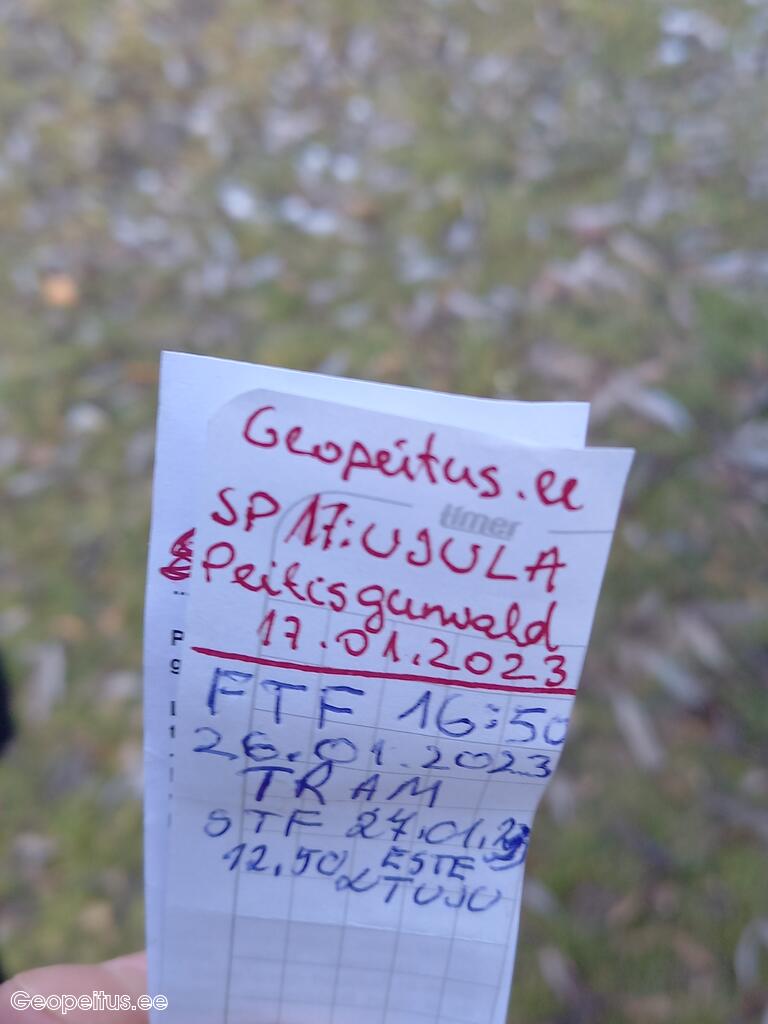 Geopeitus.ee
timer
SP 17: USULA
Peitis gunwald
17.01.2023
FTF 16:50
26.01.2023
TRAM
STF 27.01.23
12.50 ESTE
& TUSU
P
g
Geopeitus.ee